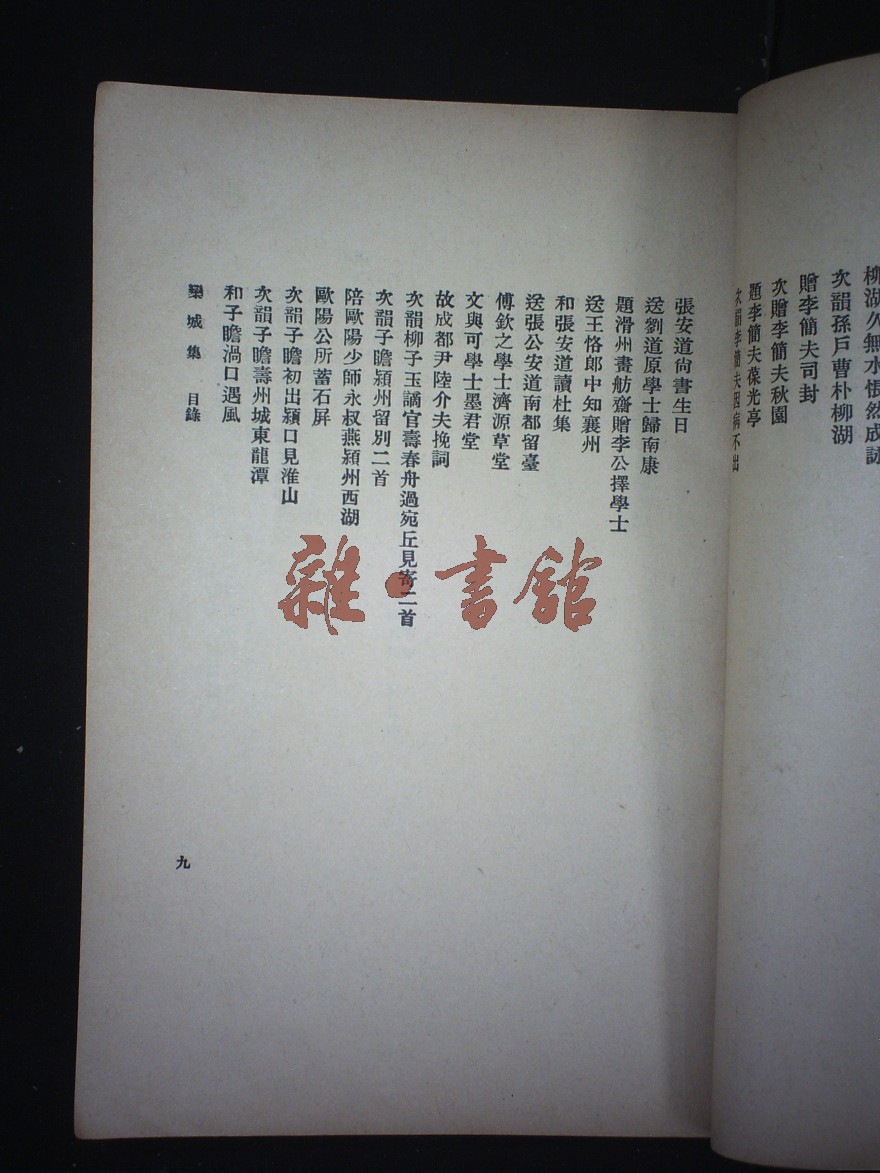 柳湖久無水悵然成詠
次韻孫戶曹朴柳湖
贈李簡夫司封
次贈李簡夫秋園
題李簡夫葆光亭
次韻李簡夫因病不出
張安道尙書生日
送劉道原學士歸南康
題滑州畫舫齋贈李公擇學士
送王恪郎中知襄州
和張安道讀杜集
送張公安道南都留臺
傅欽之學士濟源草堂
文與可學士墨君堂
故成都尹陸介夫挽詞
次韻柳子玉謫官壽春舟過宛丘見寄二首
次韻子瞻潁州留別二首
陪歐陽少師永叔燕潁州西湖
歐陽公所蓄石屏
次韻子瞻初出潁口見淮山
次韻子瞻壽州城東龍潭
和子瞻渦口遇風
欒城集 目錄
九
雜·書館